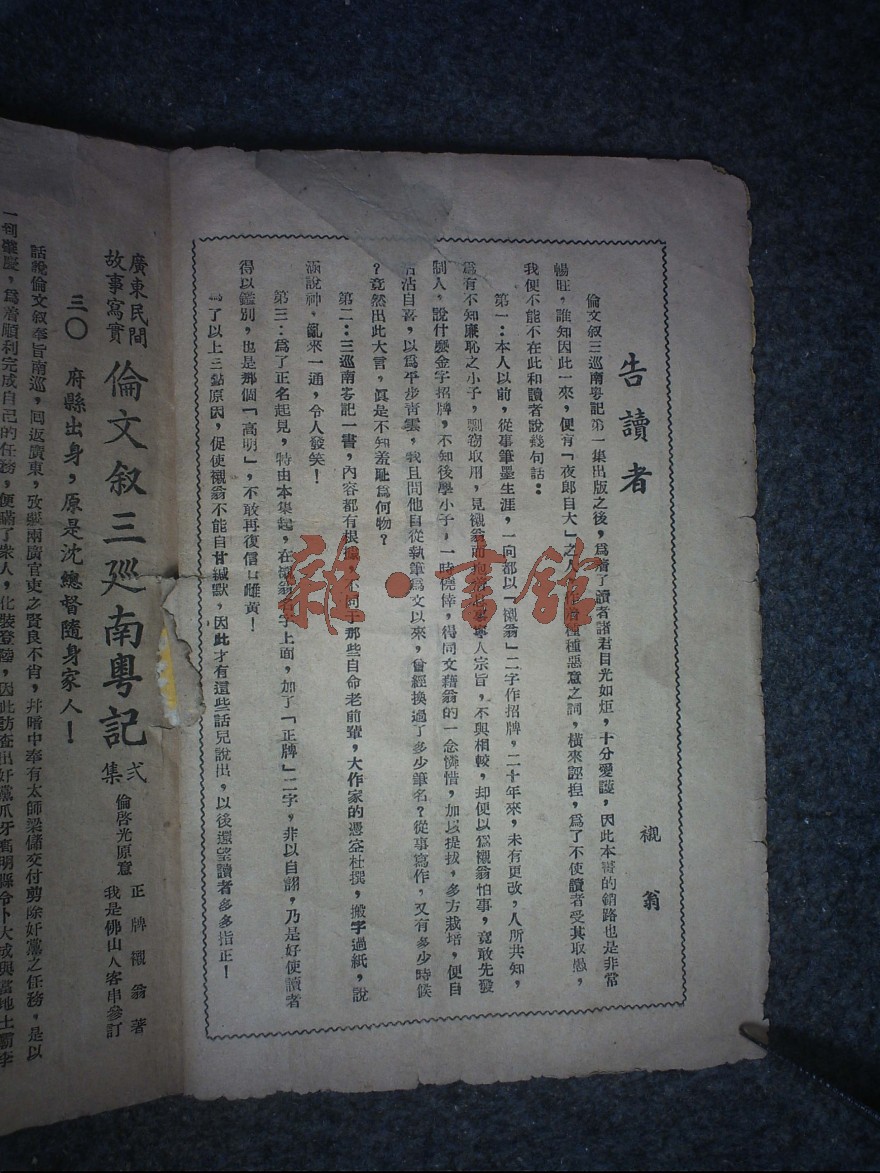 告讀者
襯翁
倫文叙三巡南粤記第一集出版之後，爲着了讀者諸君目光如炬，十分愛護，因此本書的銷路也是非常
暢旺，誰知因此一來，便有「夜郎自大」之人，作着種種惡意之詞，橫來誣捏，爲了不使讀者受其取愚，
我便不能不在此和讀者說幾句話：
第一：本人以前，從事筆墨生涯，一向都以「襯翁」二字作招牌，二十年來，未有更改，人所共知，
爲有不知廉恥之小子，剽竊取用，見襯翁而抱着息事寧人宗旨，不與相較，却便以爲襯翁怕事，竟敢先發
制人，說什麽金字招牌，不知後學小子，一時僥倖，得同文藉翁的一念憐惜，加以提拔，多方栽培，便自
沾自喜，以爲平步青雲，我且問他自從執筆爲文以來，曾經換過了多少筆名？從事寫作，又有多少時候
？竟然出此大言，眞是不知羞恥爲何物？
第二：三巡南粤記一書，內容都有根據，不同于那些自命老前輩，大作家的憑空杜撰，搬字過紙，說
涵說神，亂來一通，令人發笑！
第三：爲了正名起見，特由本集起，在襯翁名字上面，加了「正牌」二字，非以自詡，乃是好使讀者
得以鑑別，也是那個「高明」，不敢再復信口雌黃！
爲了以上三點原因，促使襯翁不能自甘緘默，因此才有這些話兒說出，以後還望讀者多多指正！
雜·書館
廣東民間
故事寫實
倫文叙三巡南粤記
弍集
倫啓光原意
正牌襯翁著
我是佛山人客串參訂
三〇　府縣出身，原是沈總督隨身家人！
話說倫文叙奉旨南巡，回返廣東，攷察兩廣官吏之賢良不肖，幷暗中奉有太師梁儲交付剪除奸黨之任務，是以
一到肇慶，爲着順利完成自己的任務，便瞞了衆人，化裝登陸，因此訪查出奸黨爪牙高明縣令卜大成與當地土霸李